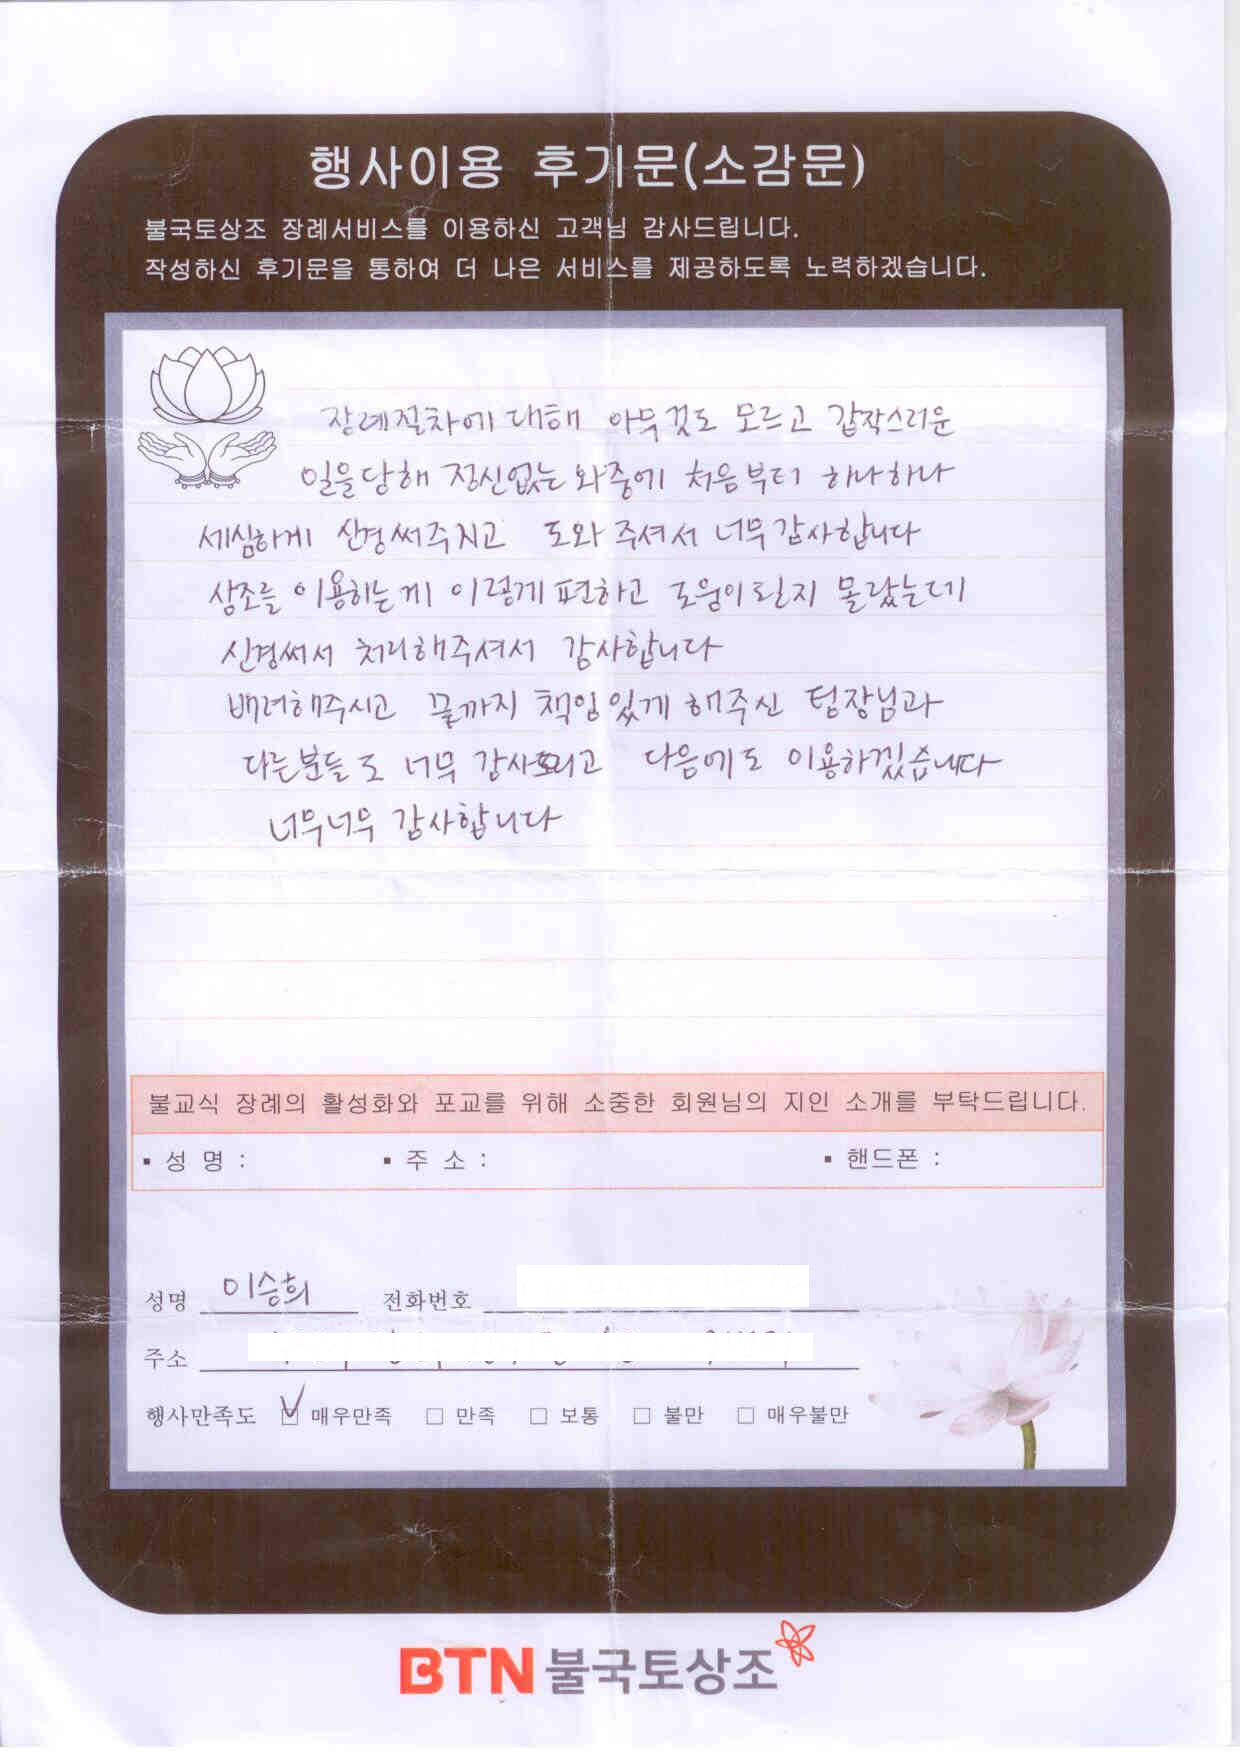 행사이용 후기문(소감문)
불국토상조 장례서비스를 이용하신 고객님 감사드립니다.
작성하신 후기문을 통하여 더 나은 서비스를 제공하도록 노력하겠습니다.
장례절차에 대해 아무것도 모르고 갑작스러운
일을당해 정신없는 와중에 처음부터 하나하나
세심하게 신경써주지고 도와주셔서 너무감사합니다
상조를 이용하는게 이렇게 편하고 도움이될지 몰랐는데
신경써서 처리해주셔서 감사합니다
배려해주시고 끝까지 책임있게 해주신 팀장님과
다른분들도 너무 감사드리고 다음에도 이용하겠습니다
너무너무 감사합니다
불교식 장례의 활성화와 포교를 위해 소중한 회원님의 지인 소개를 부탁드립니다.
▪ 성 명 : ▪ 주 소 : ▪ 핸드폰 :
성명 이승희 전화번호
주소
행사만족도 ☑ 매우만족 □ 만족 □ 보통 □ 불만 □ 매우불만
BTN 불국토상조